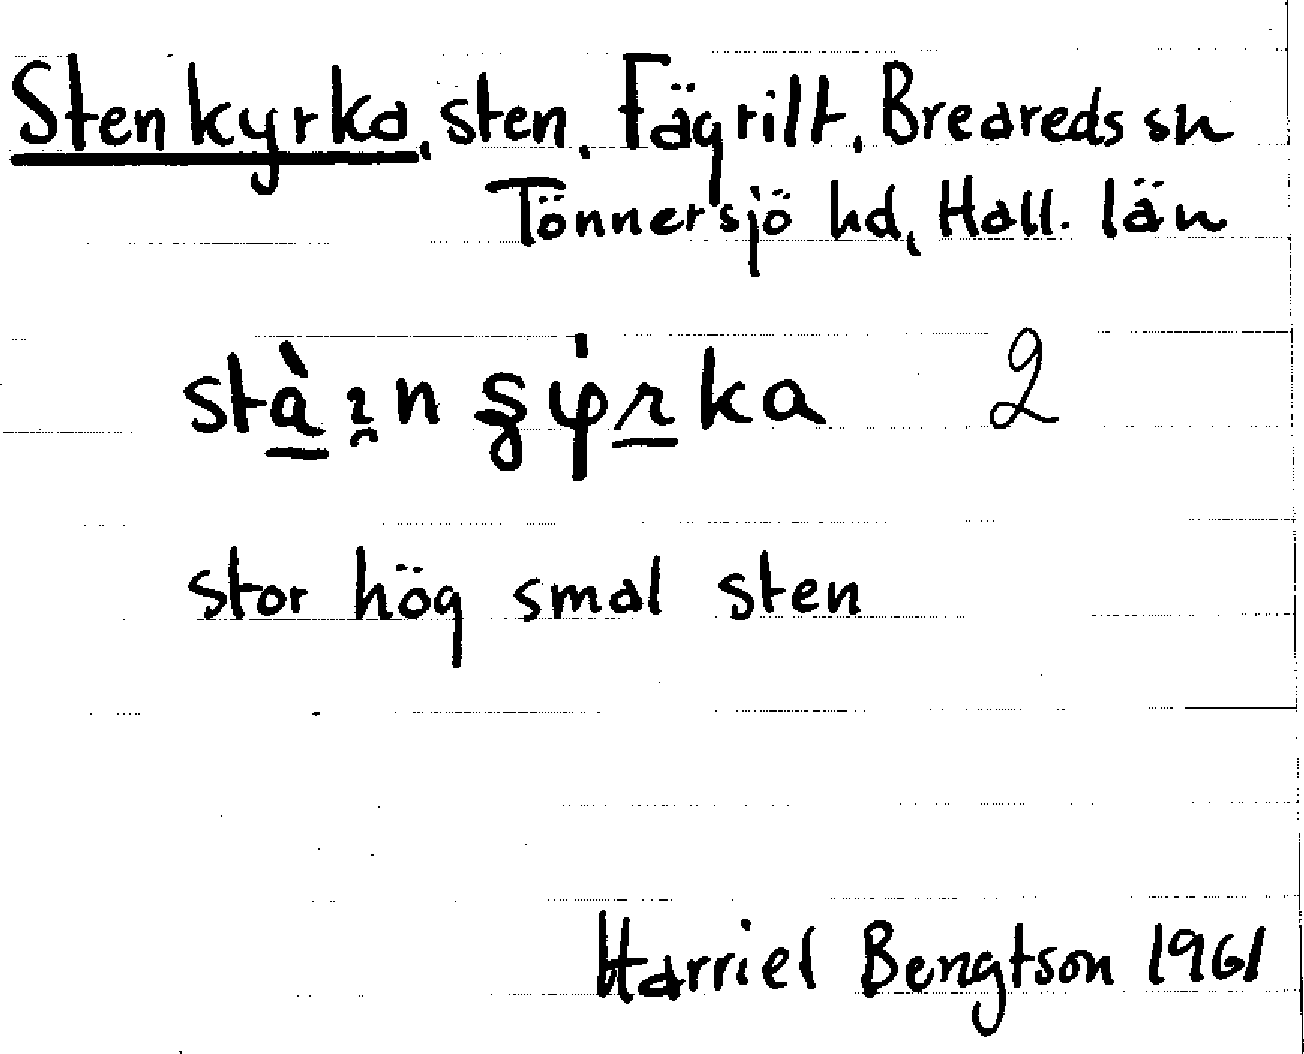 Stenkyrka, sten. Fägrilt, Breareds sn
Tönnersjö hd, Hall. län
2
stor hög smal sten
Harriet Bengtson 1961